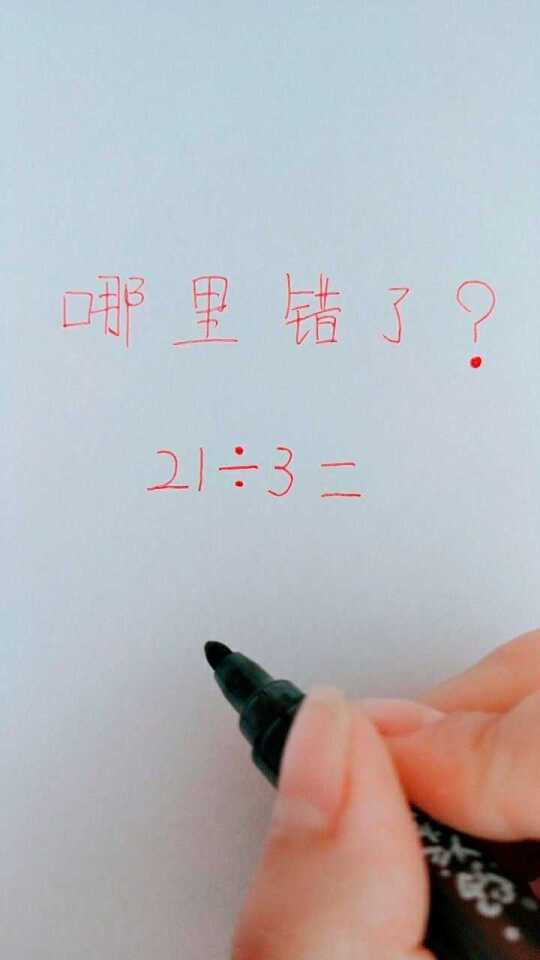 哪里错了?
21÷3=